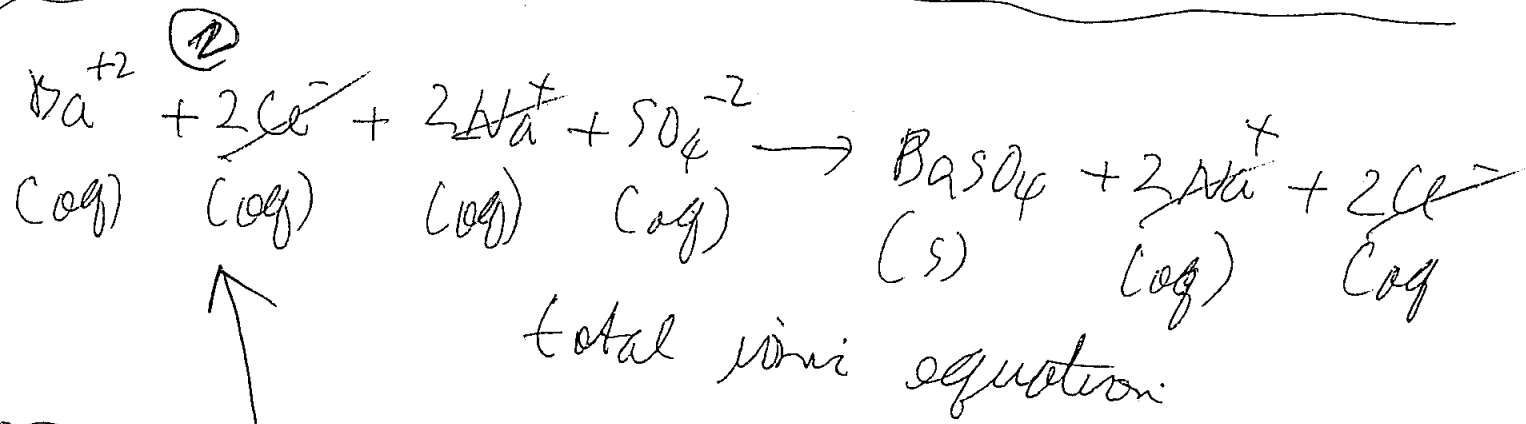 ②
Ba⁺² + 2Cl⁻ + 2Na⁺ + SO₄⁻² → BaSO₄ + 2Na⁺ + 2Cl⁻
(aq) (aq) (aq) (aq) (s) (aq) (aq
total ionic equation